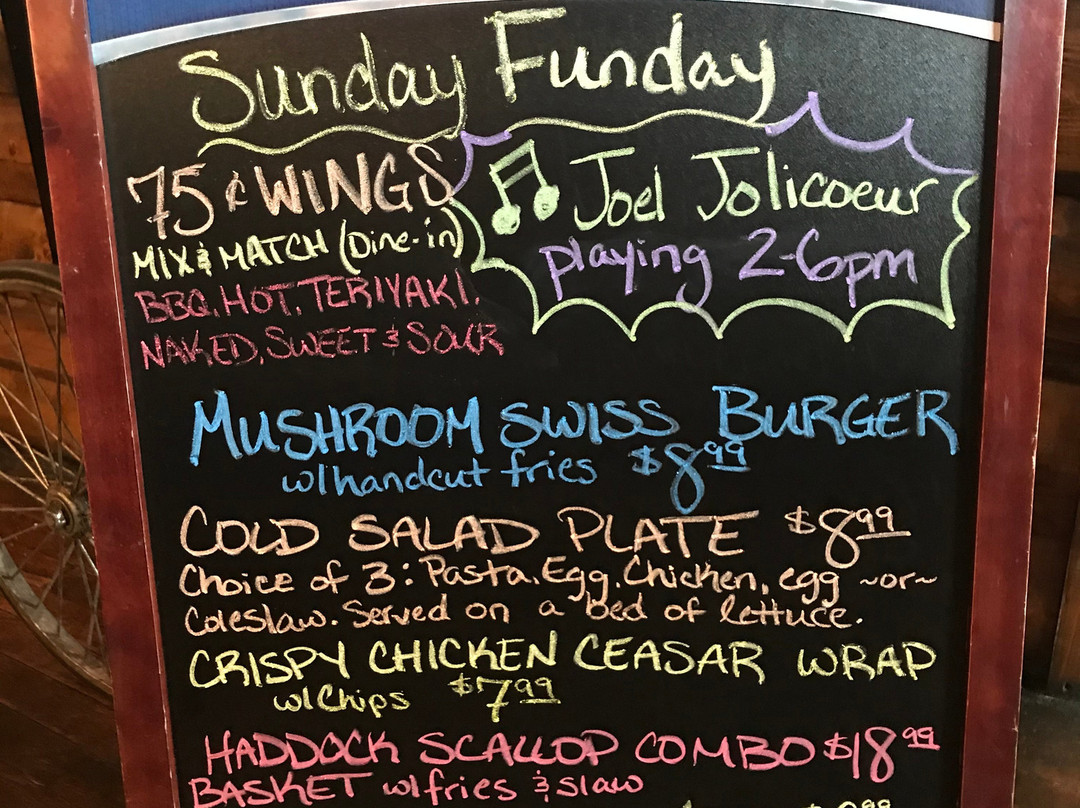 Sunday Funday
75¢ WINGS
MIX & MATCH (Dine-in)
BBQ, HOT, TERIYAKI,
NAKED, SWEET & SOUR
Joel Jolicoeur
playing 2-6pm
MUSHROOM SWISS BURGER
w/handcut fries $8.99
COLD SALAD PLATE $8.99
Choice of 3: Pasta, Egg, Chicken, egg ~or~
Coleslaw. Served on a bed of lettuce.
CRISPY CHICKEN CEASAR WRAP
w/Chips $7.99
HADDOCK SCALLOP COMBO $18.99
BASKET w/fries & slaw